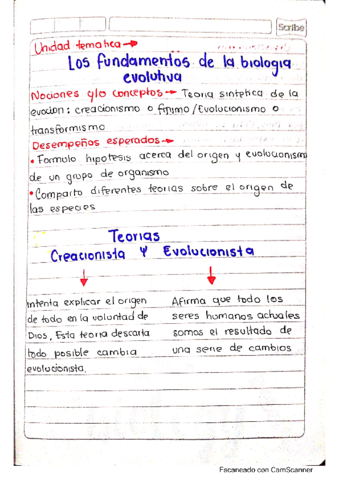 Scribe
Unidad tematica →
Los fundamentos de la biologia
evolutiva
Nociones y/o conceptos → Teoria sintetica de la
evocion: creacionismo o fijismo / Evolucionismo o
transformismo
Desempeños esperados →
• Formulo hipotesis acerca del origen y evolucionismo
de un grupo de organismo
• Comparto diferentes teorias sobre el origen de
las especies
Teorias
Creacionista y Evolucionista
Intenta explicar el origen
de todo en la voluntad de
Dios, Esta teoria descarta
todo posible cambia
evolucionista.
Afirma que todo los
seres humanos actuales
somos el resultado de
una serie de cambios
Escaneado con CamScanner